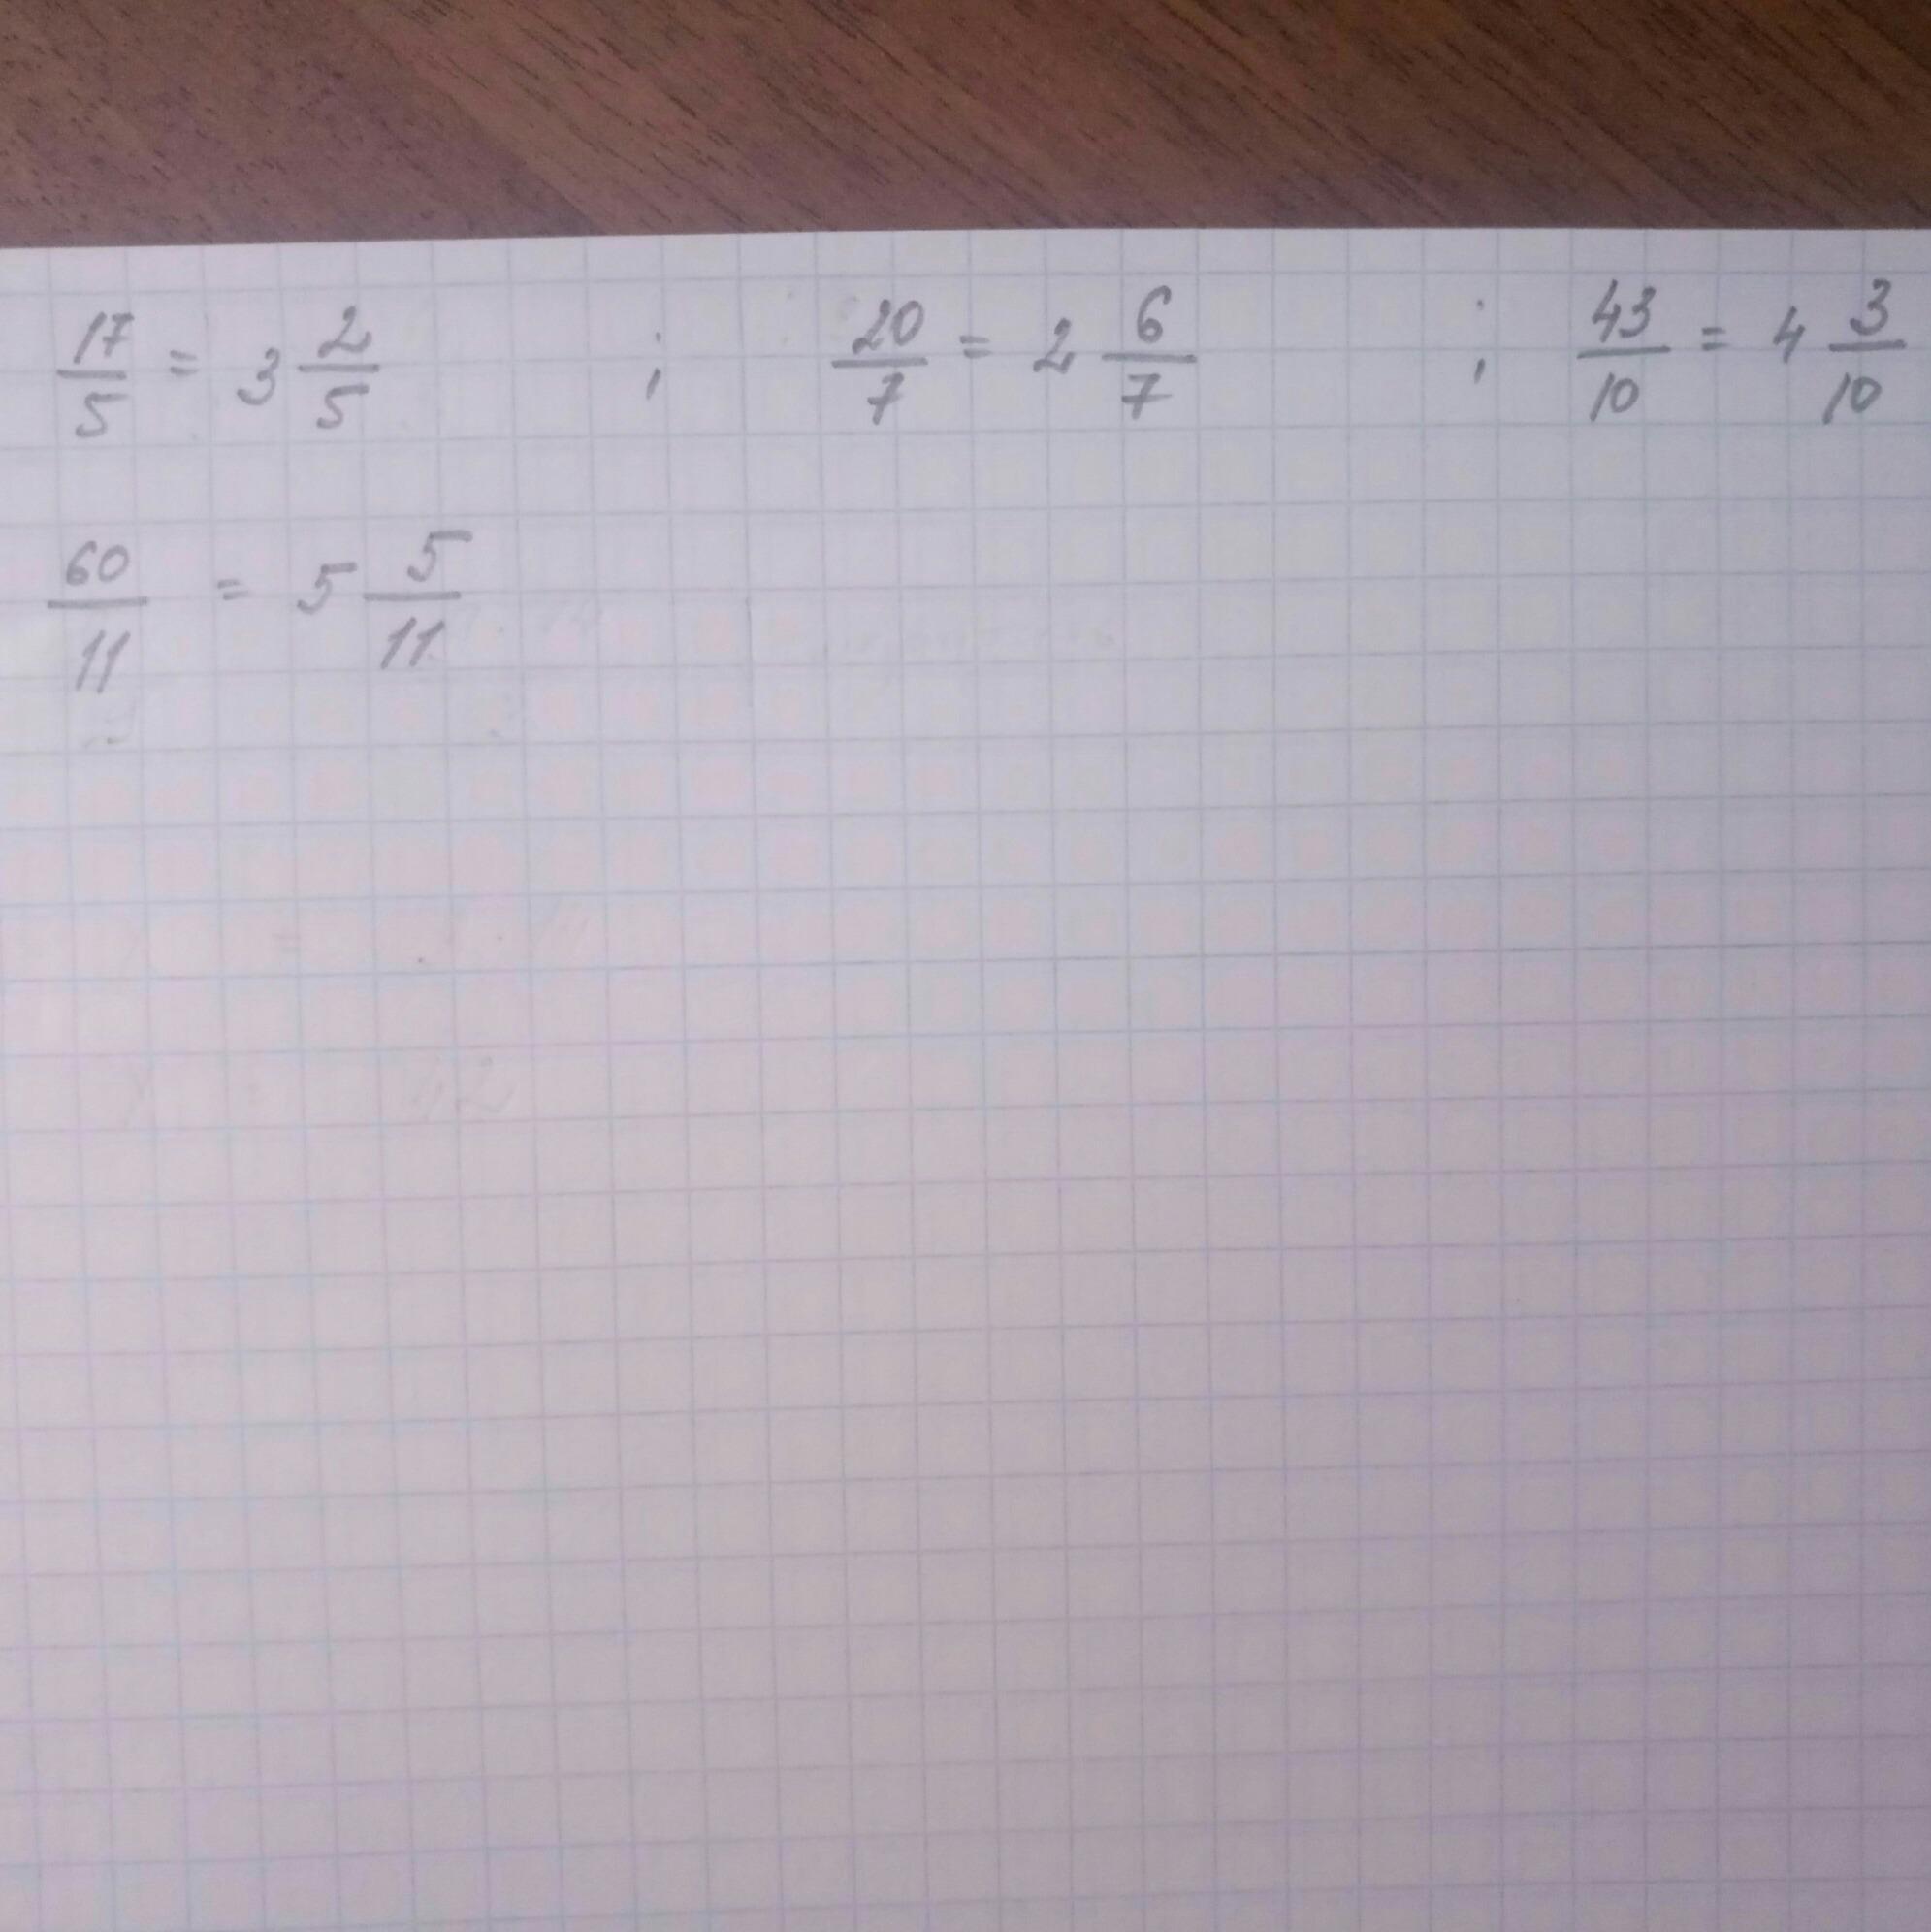 17/5 = 3 2/5 ; 20/7 = 2 6/7 ; 43/10 = 4 3/10
60/11 = 5 5/11